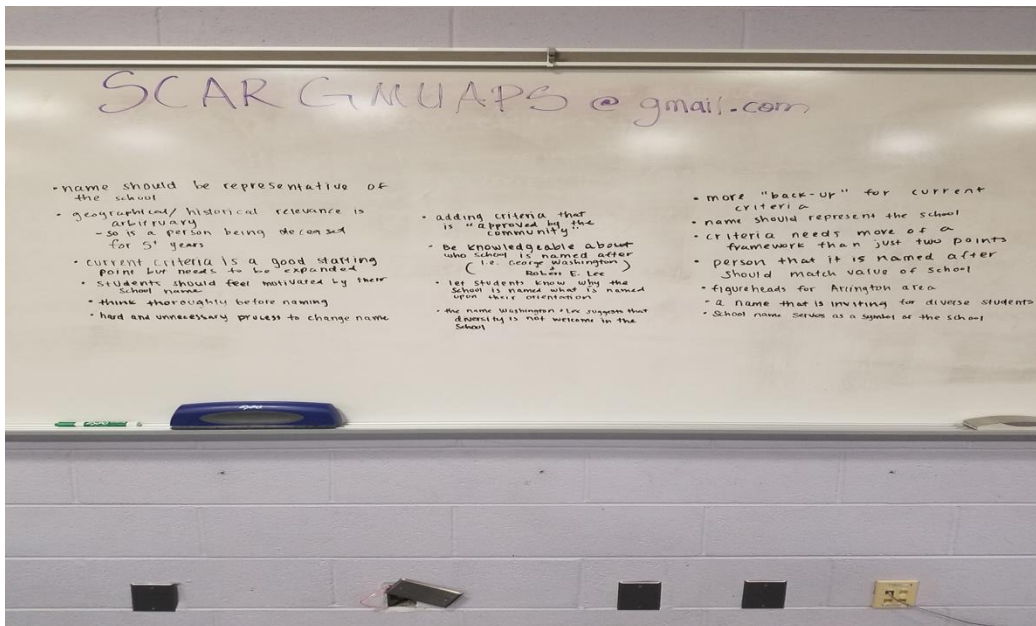 SCAR GMUAPS @ gmail.com
• name should be representative of
the school
• geographical/ historical relevance is
arbitrary
- so is a person being deceased
for 5+ years
• current criteria is a good starting
point but needs to be expanded
• students should feel motivated by their
school name
• think thoroughly before naming
• hard and unnecessary process to change name
• adding criteria that
is "approved by the
community"
• Be knowledgeable about
who school is named after
(i.e. George Washington)
+
Robert E. Lee
• let students know why the
school is named what is named
upon their orientation
• the name Washington + Lee suggests that
diversity is not welcome in the
school
• more "back-up" for current
criteria
• name should represent the school
• criteria needs more of a
framework than just two points
• person that it is named after
should match value of school
• figureheads for Arlington area
- a name that is inviting for diverse students
• School name serves as a symbol of the school
EXPO
EXPO